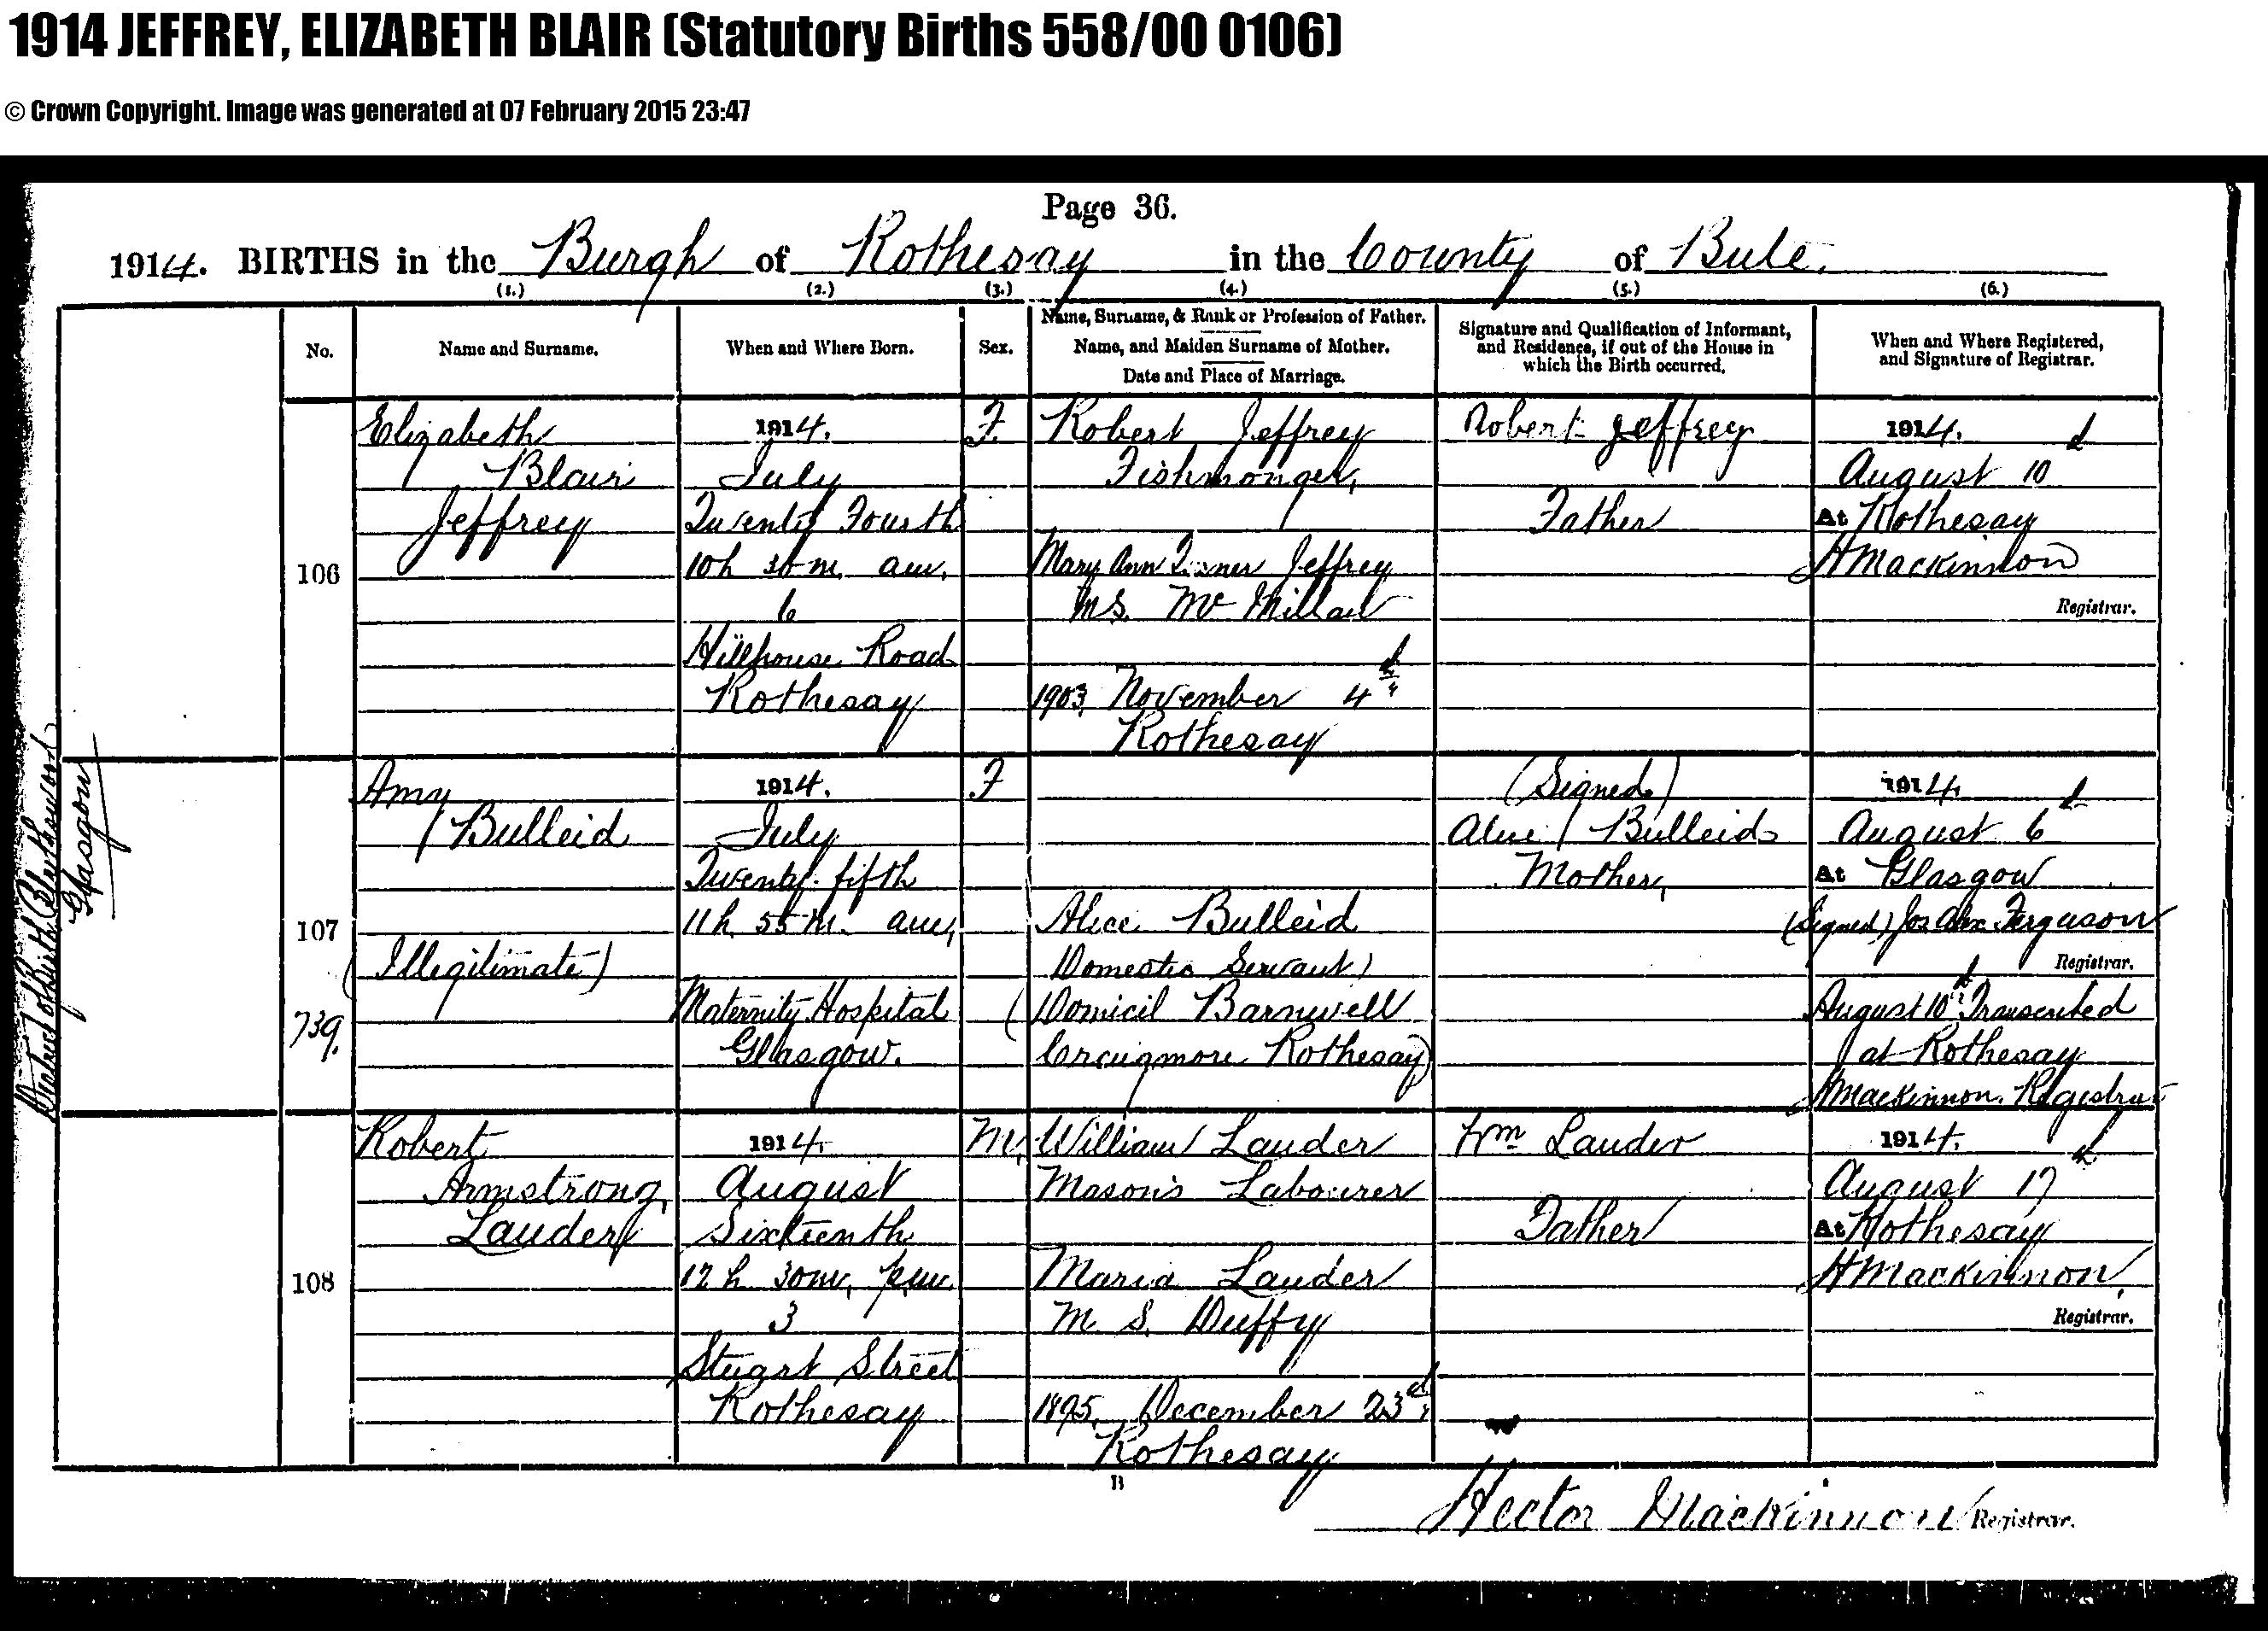 1914 JEFFREY, ELIZABETH BLAIR (Statutory Births 558/00 0106)
© Crown Copyright. Image was generated at 07 February 2015 23:47
Page 36.
1914. BIRTHS in the Burgh of Rothesay in the County of Bute.
(1.) (2.) (3.) (4.) (5.) (6.)
No.
Name and Surname.
When and Where Born.
Sex.
Name, Surname, & Rank or Profession of Father.
Name, and Maiden Surname of Mother.
Date and Place of Marriage.
Signature and Qualification of Informant,
and Residence, if out of the House in
which the Birth occurred.
When and Where Registered,
and Signature of Registrar.
106
Elizabeth
Blair
Jeffrey
1914.
July
Twenty Fourth
10h 30m. am.
6
Hillhouse Road
Rothesay
F.
Robert Jeffrey
Fishmonger,
Mary Ann Turner Jeffrey
m.s. Mc Millan
1903, November 4th
Rothesay
Robert Jeffrey
Father
1914.
August 10
At Rothesay
H Mackinnon
Registrar.
District of Birth Blythswood
Glasgow
107
739.
Amy
Bulleid
(Illegitimate)
1914.
July
Twenty fifth
11h. 55m. am,
Maternity Hospital
Glasgow.
F
Alice Bulleid
Domestic Servant
(Domicil Barnwell
Craigmore Rothesay)
(Signed)
Alice Bulleid
Mother,
1914.
August 6
At Glasgow
(Signed) Jas Alex Ferguson
Registrar.
August 10th Transcribed
at Rothesay
H Mackinnon. Registrar
108
Robert
Armstrong
Lauder
1914.
August
Sixteenth
12h 30m, p.m.
3
Stuart Street
Rothesay
M.
William Lauder
Mason's Labourer
Maria Lauder
M. S. Duffy
1895, December 23d,
Rothesay
Wm Lauder
Father
1914.
August 17
At Rothesay
H Mackinnon,
Registrar.
B
Hector Mackinnon Registrar.